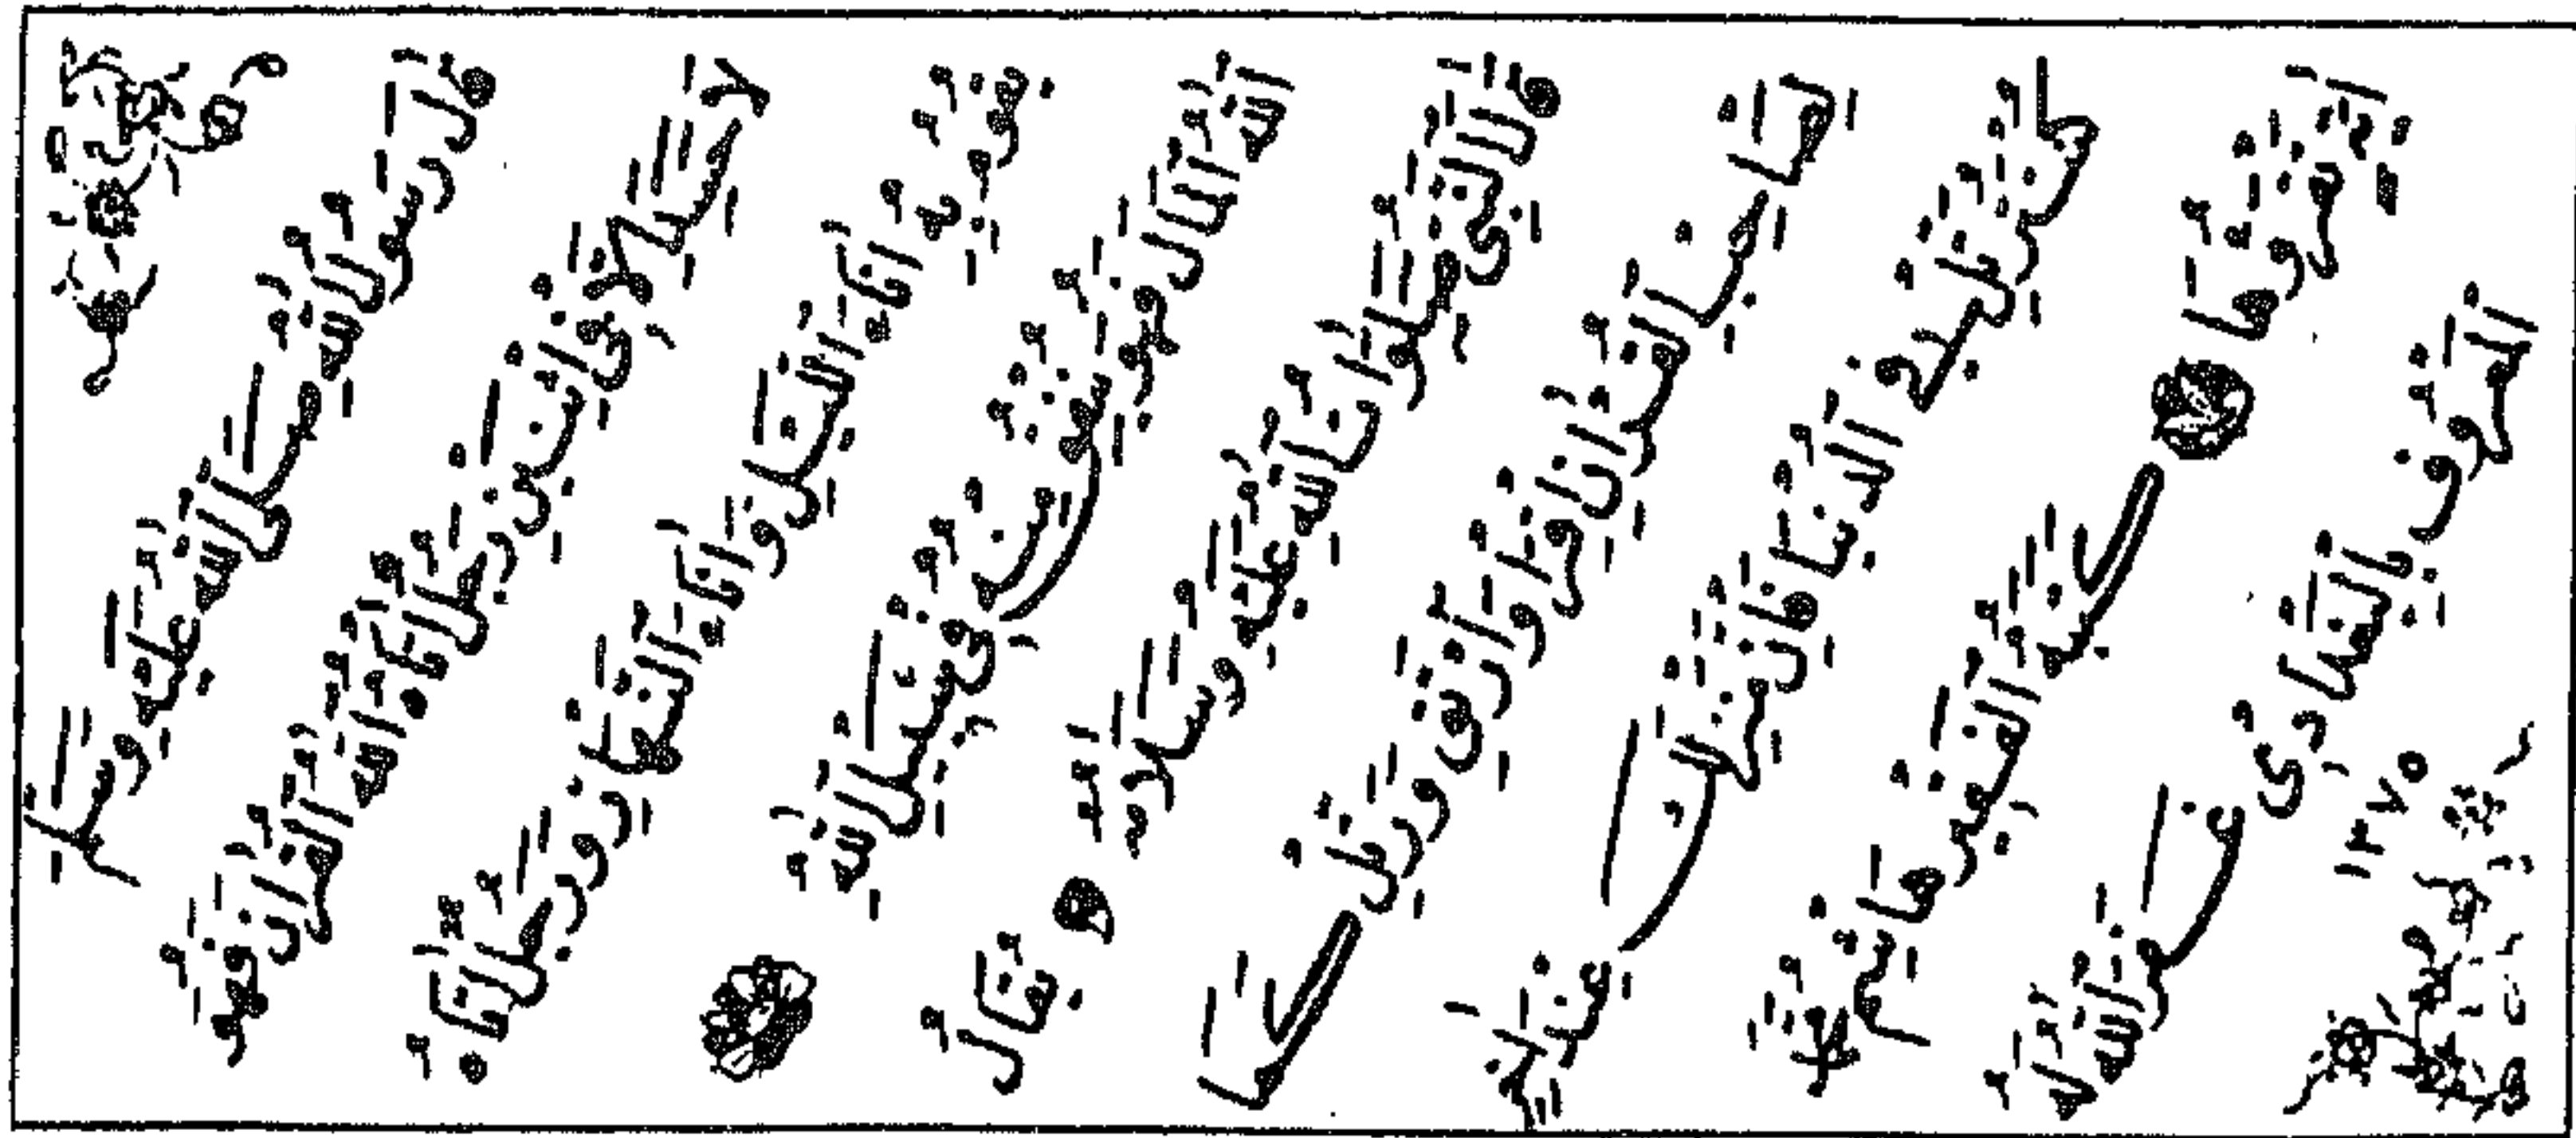 قال رسول الله صلى الله عليه وسلم
لا حسد إلا في اثنتين رجل آتاه الله القرآن فهو
يقوم به آناء الليل وآناء النهار ورجل آتاه
الله المال فهو في سبيل الله
قال النبي صلوات الله عليه وسلامه يقال
لصاحب القرآن اقرأ وارق ورتل كما
كنت ترتل في الدنيا فإن منزلتك عند آخر
آية تقرؤها كتبه الفقير هاشم
المعروف بالبغدادي غفر الله له
١٣٧٥